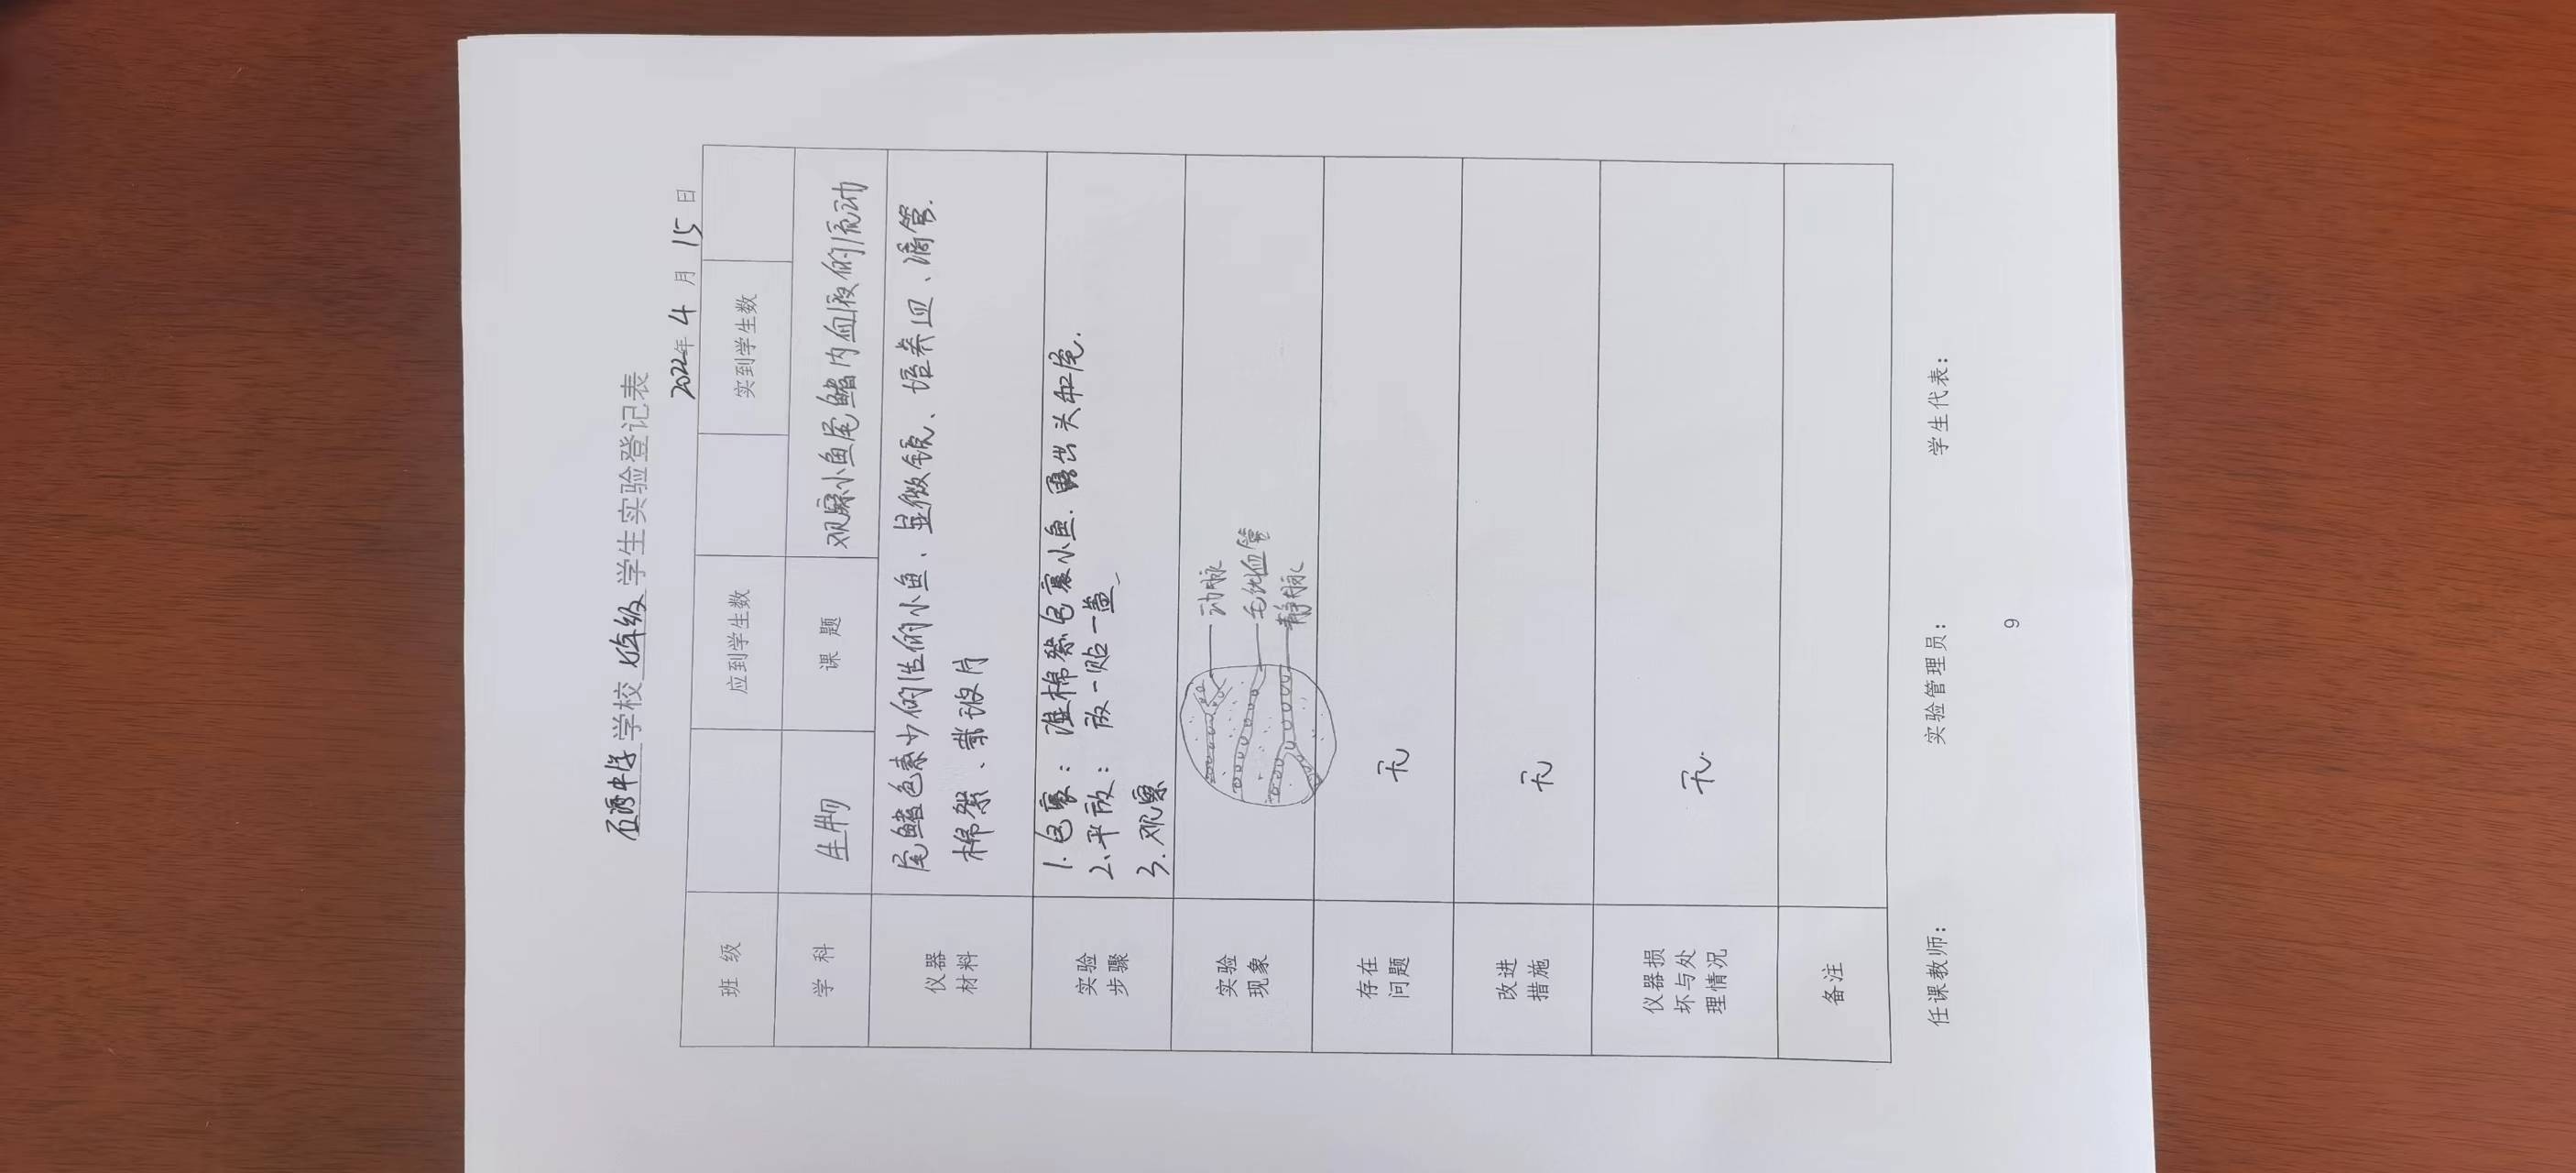 中学学校七年级学生实验登记表
2022年4月15日
班 级 应到学生数 实到学生数
学 科 生物 课 题 观察小鱼尾鳍内血液的流动
仪器
材料
尾鳍色素少的活的小鱼、显微镜、培养皿、滴管.
棉絮、载玻片
实验
步骤
1.包裹:湿棉絮包裹小鱼.露出头和尾.
2、平放:放一贴一盖
3.观察
实验
现象
动脉
毛细血管
静脉
存在
问题
无
改进
措施
无
仪器损
坏与处
理情况
无.
备注
任课教师: 实验管理员: 学生代表:
9